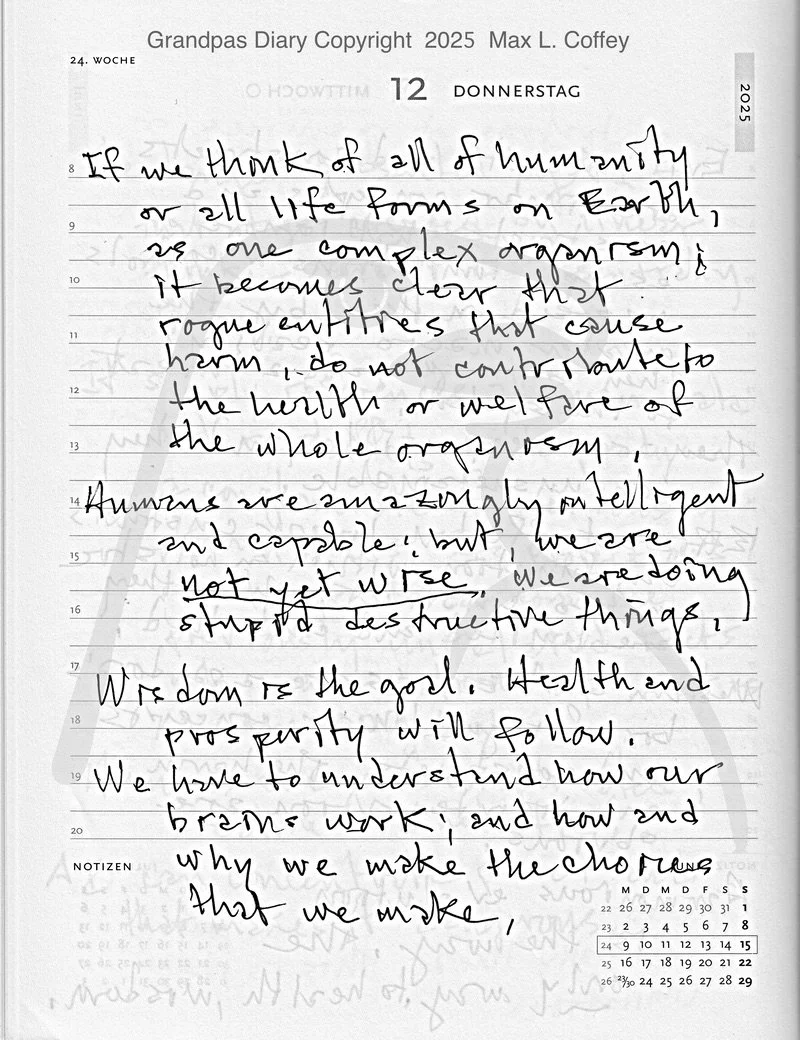 Grandpas Diary Copyright 2025 Max L. Coffey
24. WOCHE
12 DONNERSTAG
2025
8 If we think of all of humanity
or all life forms on Earth,
9
as one complex organism;
10 it becomes clear that
rogue entities that cause
11
harm, do not contribute to
12 the health or welfare of
13 the whole organism.
14 Humans are amazingly intelligent
and capable; but, we are
15
not yet wise. We are doing
16 stupid destructive things.
17
Wisdom is the goal. Health and
18 prosperity will follow.
19 We have to understand how our
brains work; and how and
20
NOTIZEN
why we make the choices
JUNI
that we make.
M D M D F S S
22 26 27 28 29 30 31 1
23 2 3 4 5 6 7 8
24 9 10 11 12 13 14 15
25 16 17 18 19 20 21 22
26 23/30 24 25 26 27 28 29